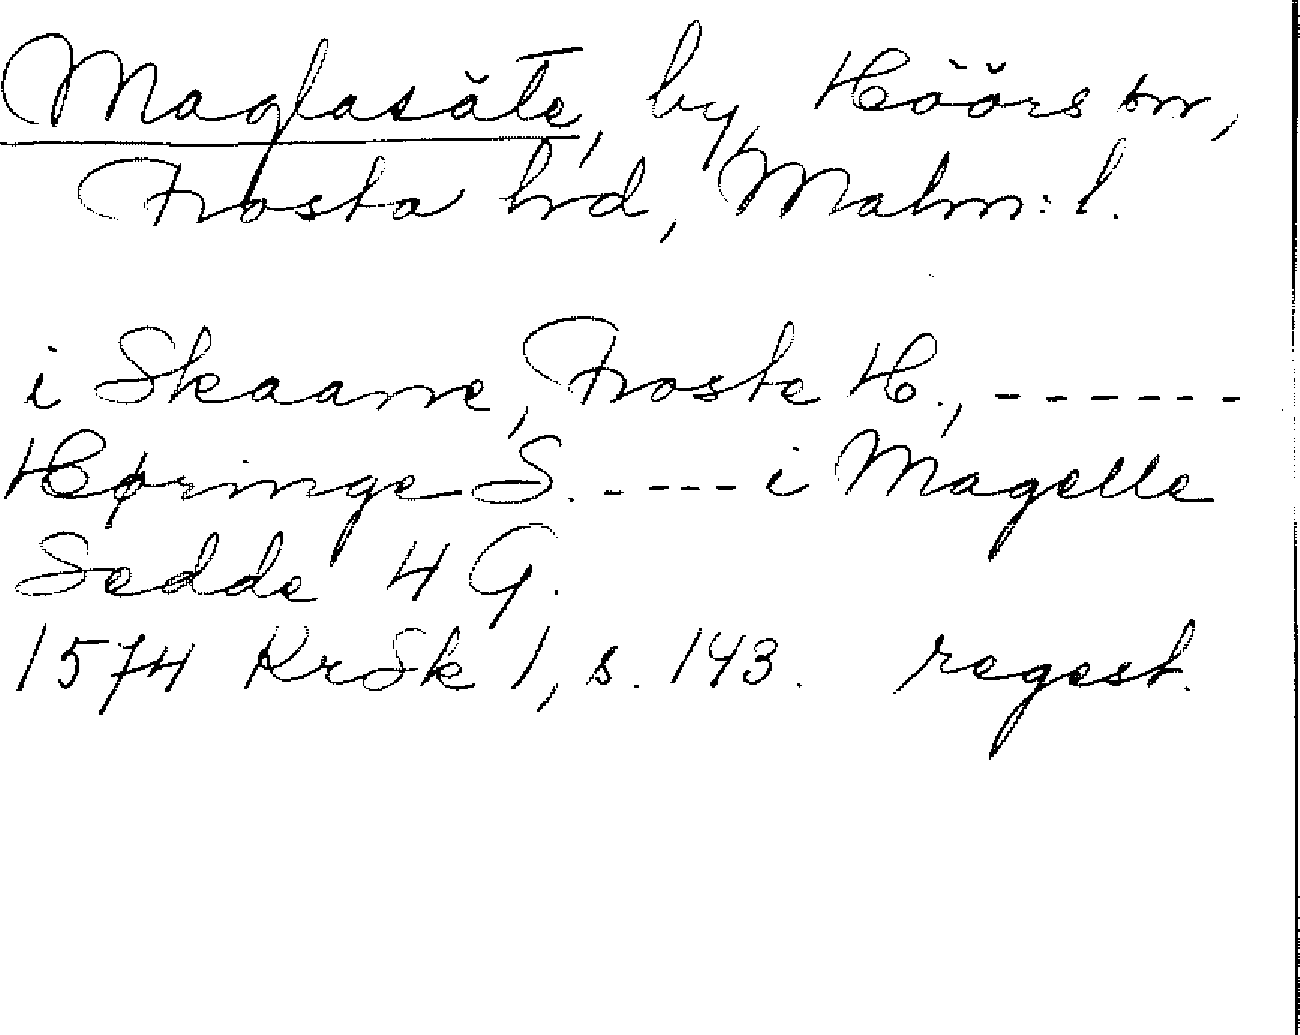 Maglasäte, by, Höörs sn,
Frosta hd, Malm: l.
i Skaane, Froste H., ------
Høringe S. ----- i Magelle
Sedde 4 G.
1574 KrSk 1, s. 143. regest.